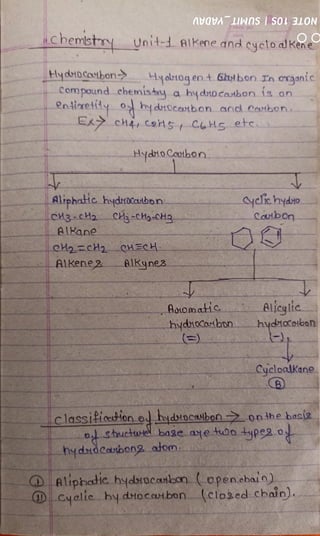 NOTE 10S | SUMIT_YADAV
Chemistry Unit-1 Alkane and cycloalkene
Hydrocarbon → Hydrogen + Carbon In organic
compound chemistry a hydrocarbon is on
entiretity of hydrocarbon and carbon.
Ex→ CH4, C2H5, C6H5 etc.
Hydrocarbon
Aliphatic hydrocarbon
CH3-CH2 CH3-CH2-CH3
Alkane
CH2=CH2 CH≡CH
Alkenes Alkynes
Cyclic hydro
carbon
Aromatic
hydrocarbon
(=)
Alicylic
hydrocarbon
(-)
Cycloalkane
B
Classification of hydrocarbon → on the basis
of structure base are two types of
hydrocarbons atom.
I Aliphatic hydrocarbon (openchain)
II Cyclic hydrocarbon (closed chain).